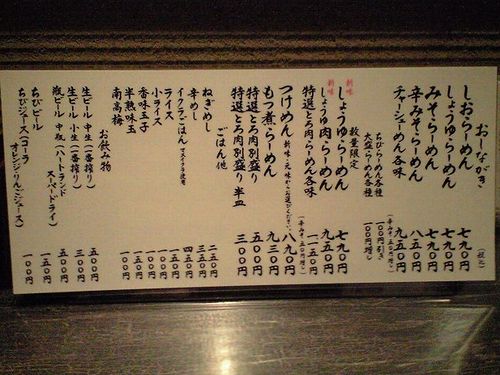 おしながき
(税込)
しおらーめん 七九〇円
しょうゆらーめん 七九〇円
みそらーめん 七九〇円
辛みそらーめん 八五〇円
チャーシューめん各味 九五〇円
(辛みそ 五〇円増し)
ちびらーめん各種 一〇〇円引き
大盛らーめん各種 一〇〇円増し
数量限定
新味 しょうゆらーめん 七九〇円
新味 しょうゆ肉らーめん 九五〇円
特選とろ肉らーめん各味 一一五〇円
(辛みそ 五〇円増し)
つけめん 新味・元味からお選びください。 八九〇円
もつ煮らーめん 九三〇円
特選とろ肉別盛り 五〇〇円
特選とろ肉別盛り 半皿 三〇〇円
ごはん他
ねぎめし 二五〇円
辛めし 三五〇円
イクラごはん 四五〇円
ライス 一五〇円
小ライス 一〇〇円
香味玉子 一〇〇円
半熟味玉 一五〇円
南高梅 一〇〇円
お飲み物
生ビール 中生 (一番搾り) 五〇〇円
生ビール 小生 (一番搾り) 三〇〇円
瓶ビール 中瓶 (ハートランド 五〇〇円
スーパードライ)
ちびビール 一五〇円
ちびジュース (コーラ 一〇〇円
オレンジ・りんごジュース)